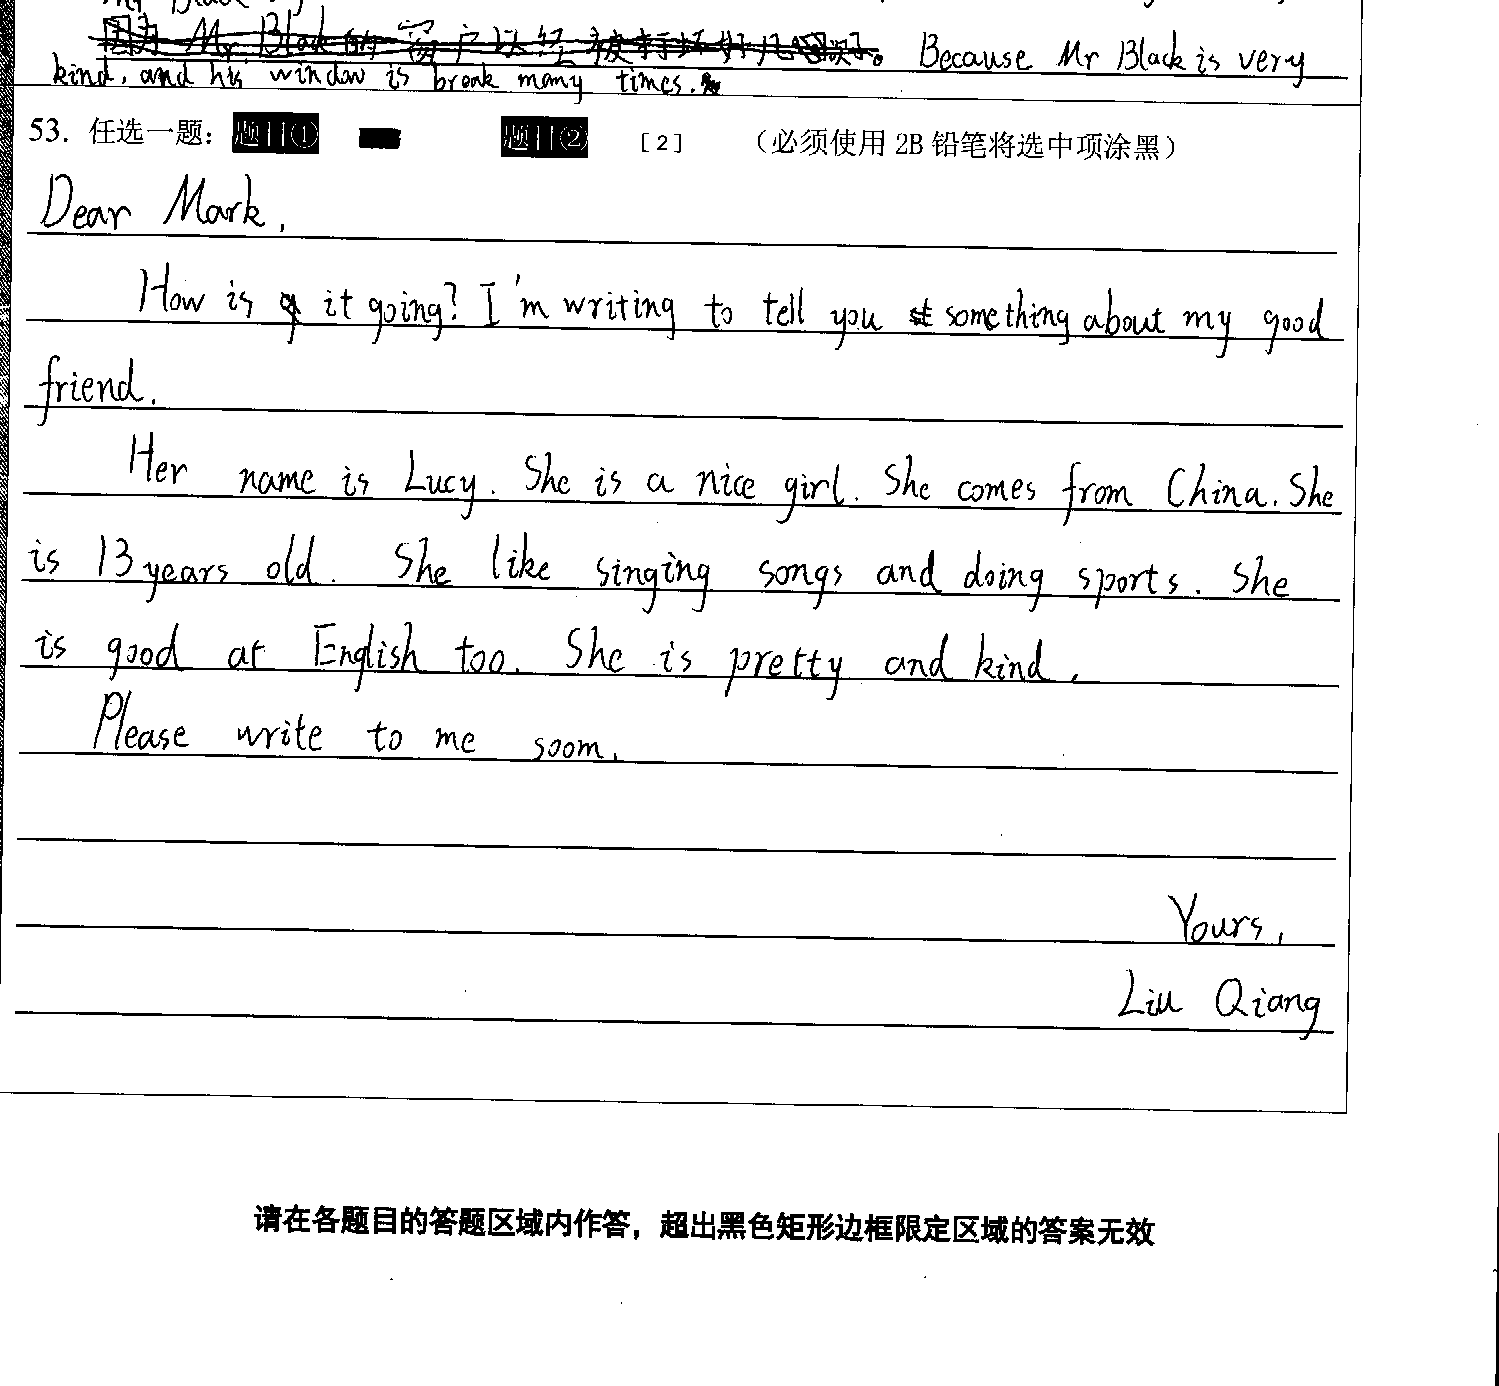 Because Mr Black is very
kind, and his window is break many times.
53. 任选一题： 题目① 题目② [2] （必须使用 2B 铅笔将选中项涂黑）
Dear Mark,
How is it going? I'm writing to tell you something about my good
friend.
Her name is Lucy. She is a nice girl. She comes from China. She
is 13 years old. She like singing songs and doing sports. She
is good at English too. She is pretty and kind.
Please write to me soom.
Yours,
Liu Qiang
请在各题目的答题区域内作答，超出黑色矩形边框限定区域的答案无效